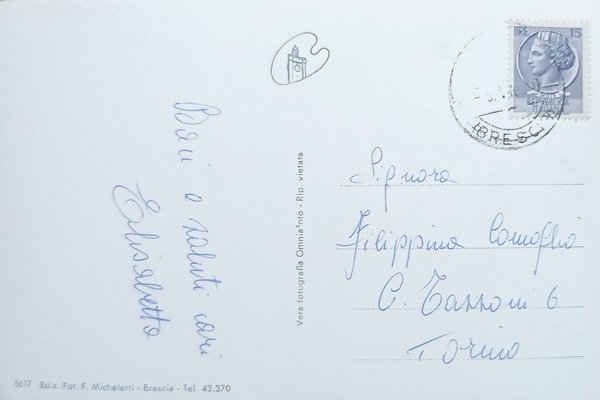 LIRE 15
REPUBBLICA
ITALIANA
BRESCIA
Baci e saluti cari
Elisabetta
Vera fotografia Omniafoto - Rip. vietata
Signora
Filippina Comoglio
C. Tassoni 6
Torino
5617 Ediz. Fot. F. Micheletti - Brescia - Tel. 43.370